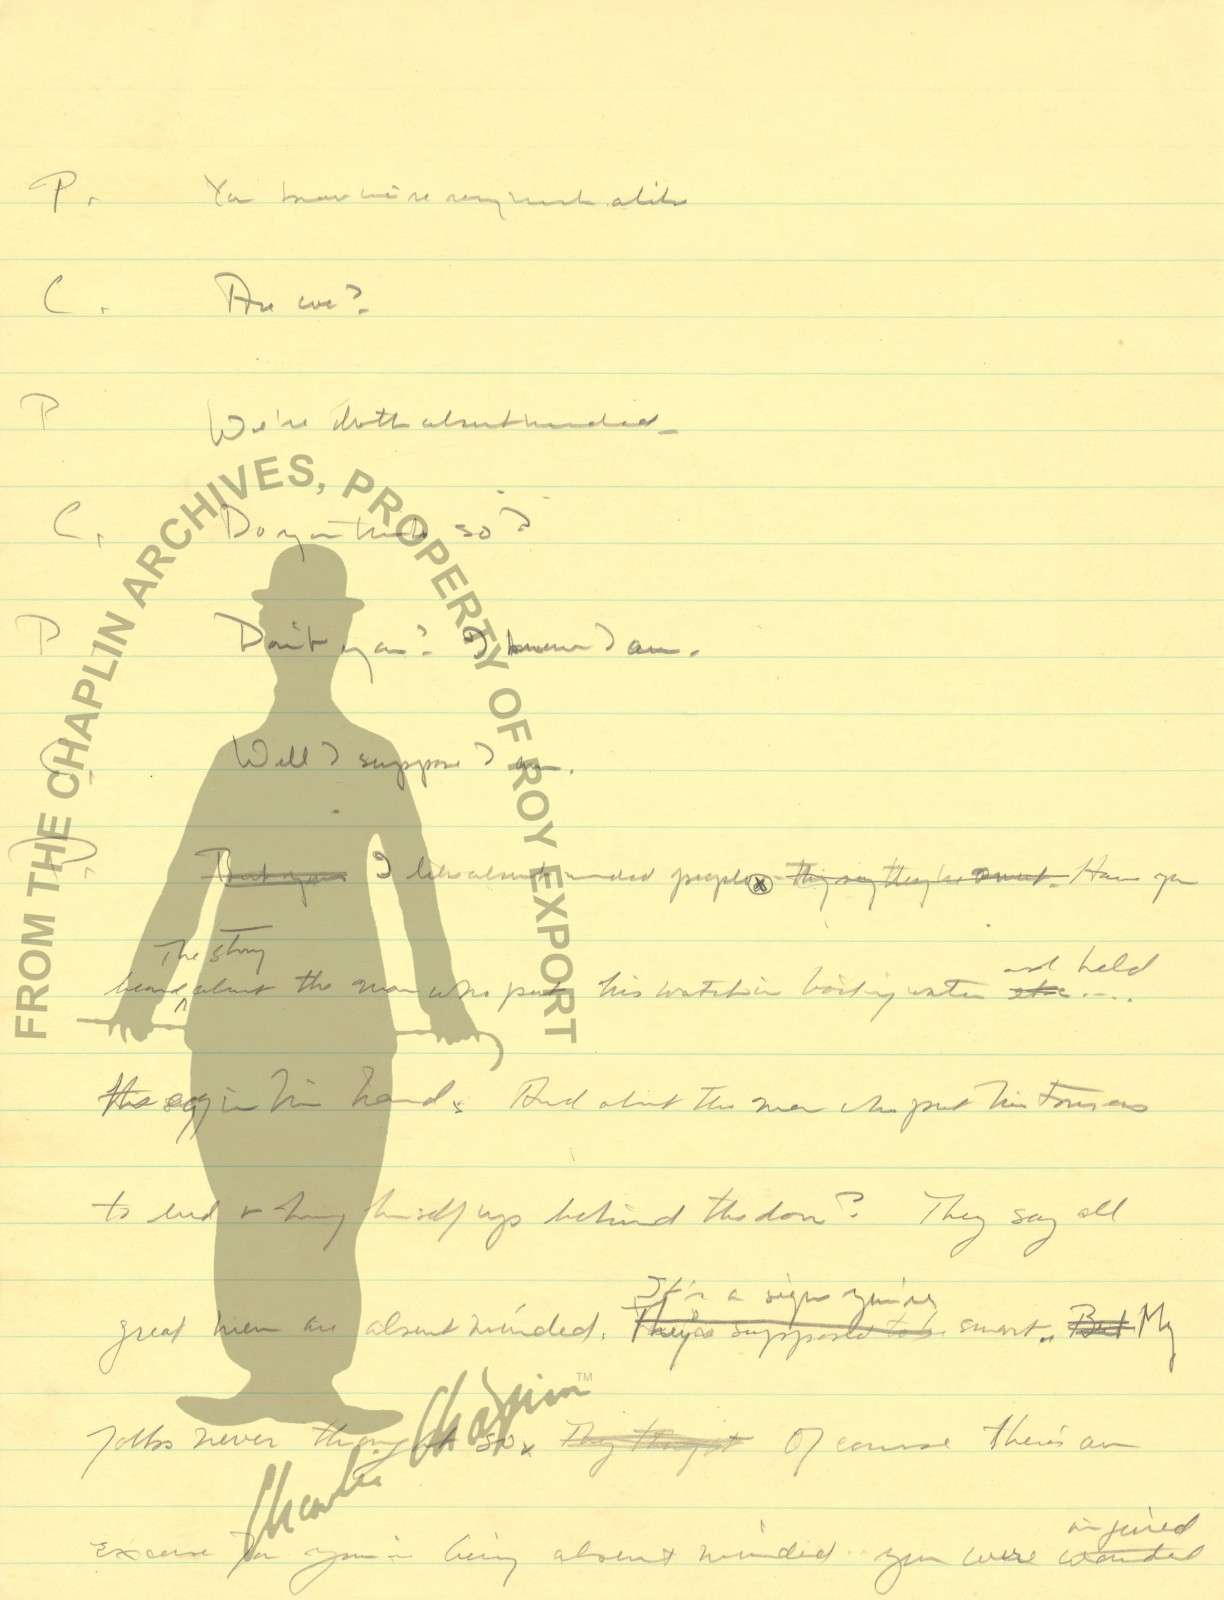 P. You know we're very much alike
C. Are we?
P We're both absentminded_
C. Do you think so?
P Don't you? I know I am.
Well I suppose I am.
P. But you I like absent minded people they say they're smart. Have you
The story
and held
heard about the man who put his watch in boiling water etc....
the egg in his hand. And about the man who put his trousers
to bed & hung himself up behind the door? They say all
It's a sign you're
great men are absent minded. They're supposed to be smart.. But My
folks never thought so. They thought Of course there's an
injured
excuse for your being absent minded.. you were wounded
FROM THE CHAPLIN ARCHIVES, PROPERTY OF ROY EXPORT
Charlie Chaplin™